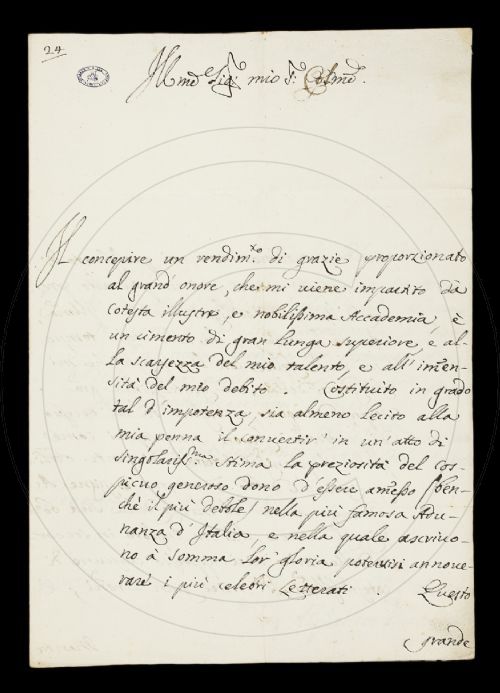 24
Ill.mo Sig.r mio S.r Col.mo.
Il concepire un rendim.to di grazie proporzionato
al grand' onore, che mi viene impartito da
cotesta illustre, e nobilissima Accademia è
un cimento di gran lunga superiore, e al-
la scarsezza del mio talento, e all' immen-
sità del mio debito. Costituito in grado
tal d' impotenza, sia almeno lecito alla
mia penna il convertir in un' atto di
singolariss.ma stima la preziosità del cos-
picuo generoso dono d' essere amesso (ben-
chè il più debole) nella più famosa Adu-
nanza d' Italia, e nella quale ascrivo-
no à somma lor' gloria potervisi annove-
rare i più celebri Letterati. Questo
grande